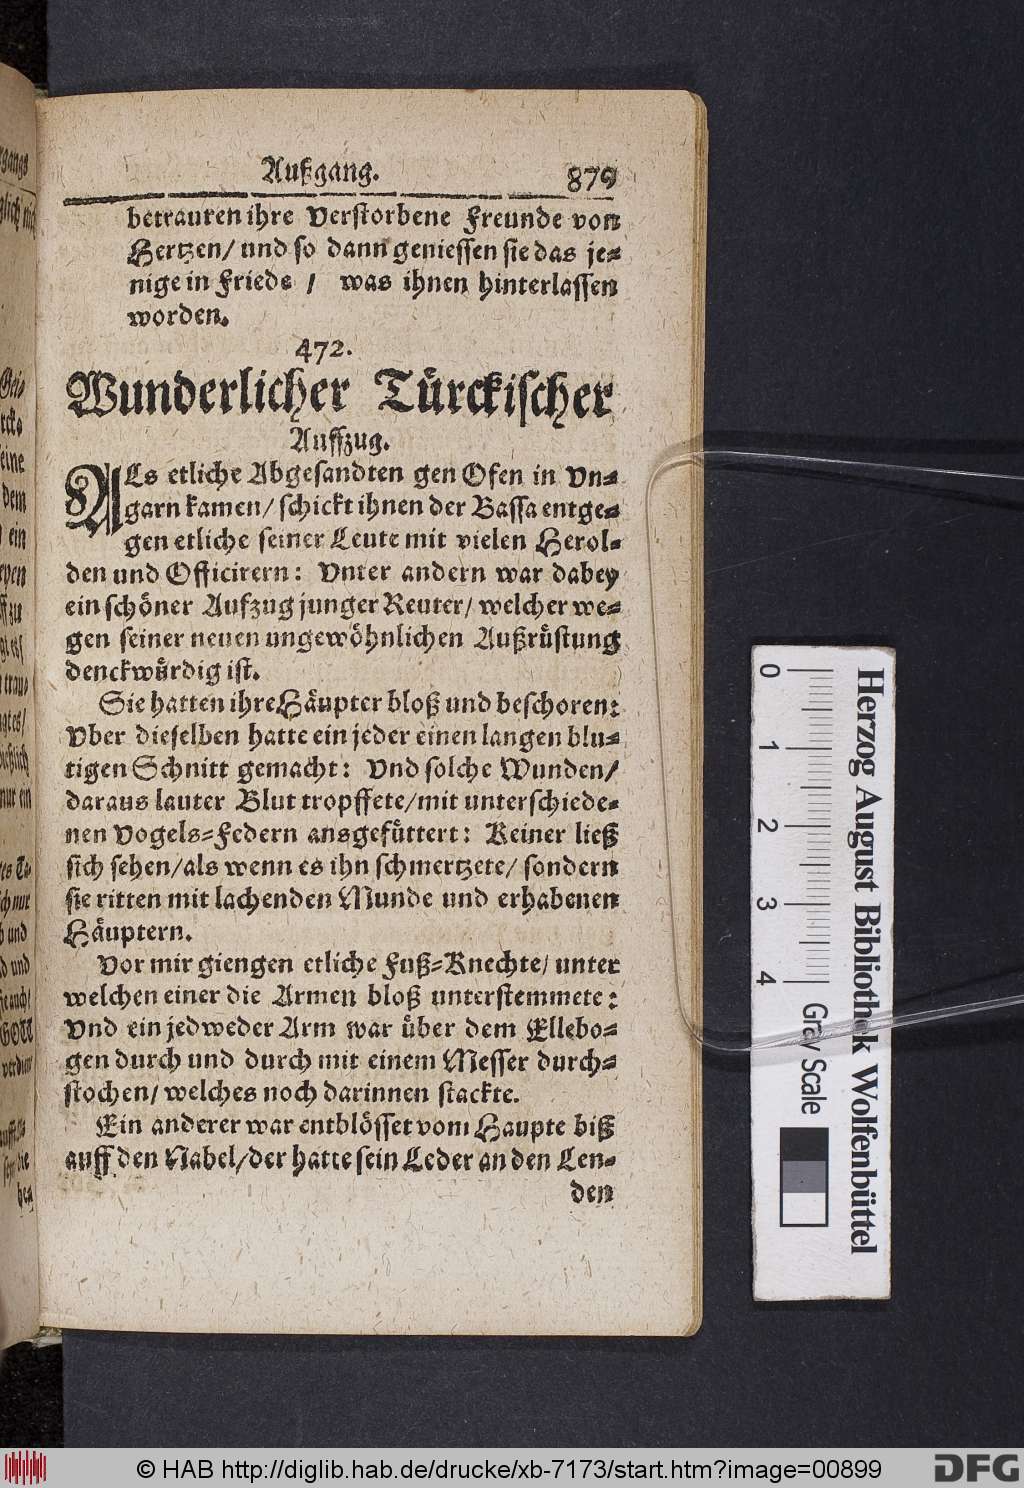 Außgang. 879
betrauren ihre Verstorbene Freunde von
Hertzen/ und so dann geniessen sie das je-
nige in Friede / was ihnen hinterlassen
worden.
472.
Wunderlicher Türckischer
Auffzug.
ALs etliche Abgesandten gen Ofen in Vn-
garn kamen/ schickt ihnen der Bassa entge-
gen etliche seiner Leute mit vielen Herol-
den und Officirern: Vnter andern war dabey
ein schöner Aufzug junger Reuter/ welcher we-
gen seiner neuen ungewöhnlichen Außrüstung
denckwürdig ist.
Sie hatten ihre Häupter bloß und beschoren:
Vber dieselben hatte ein jeder einen langen blu-
tigen Schnitt gemacht: Vnd solche Wunden/
daraus lauter Blut tropffete/ mit unterschiede-
nen Vogels-Federn ansgefüttert: Keiner ließ
sich sehen/ als wenn es ihn schmertzete/ sondern
sie ritten mit lachenden Munde und erhabenen
Häuptern.
Vor mir giengen etliche Fuß-Knechte/ unter
welchen einer die Armen bloß unterstemmete:
Vnd ein jedweder Arm war über dem Ellebo-
gen durch und durch mit einem Messer durch-
stochen/ welches noch darinnen stackte.
Ein anderer war entblösset vom Haupte biß
auff den Nabel/ der hatte sein Leder an den Len-
den
Herzog August Bibliothek Wolfenbüttel
0 1 2 3 4 Gray Scale
© HAB http://diglib.hab.de/drucke/xb-7173/start.htm?image=00899
DFG